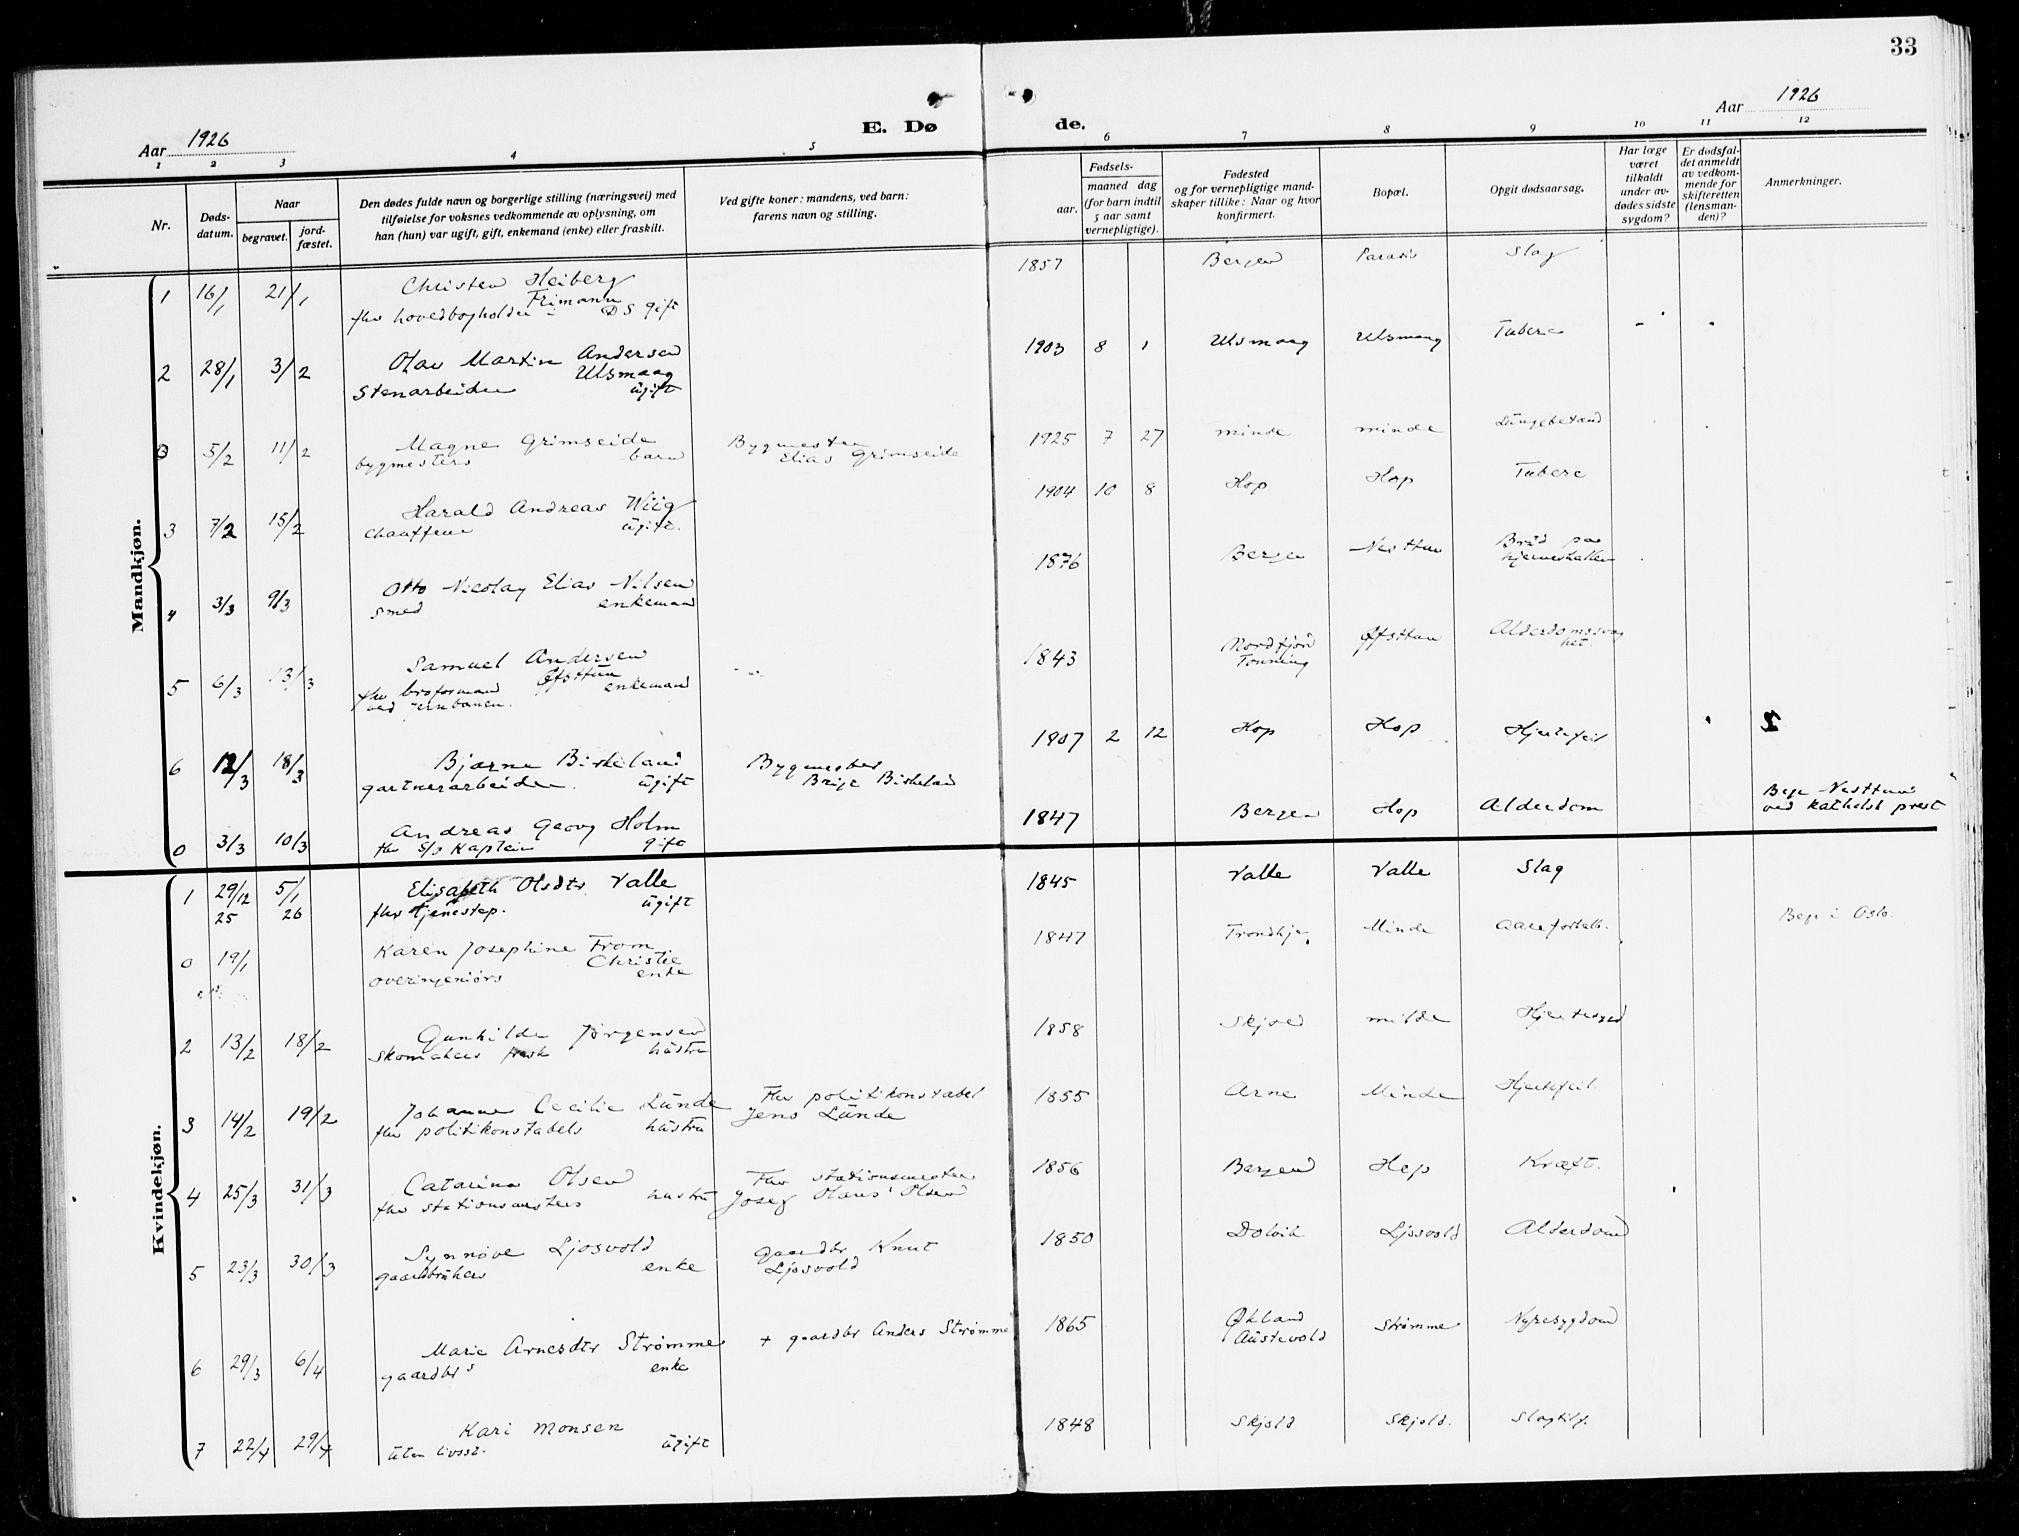 33
Aar 1926
E. Dø
de.
Aar 1926
1 2 3 4 5 6 7 8 9 10 11 12
Nr.
Døds-
datum.
Naar
begravet.
jord-
fæstet.
Den dødes fulde navn og borgerlige stilling (næringsvei) med
tilføielse for voksnes vedkommende av oplysning, om
han (hun) var ugift, gift, enkemand (enke) eller fraskilt.
Ved gifte koner: mandens, ved barn:
farens navn og stilling.
Fødsels-
aar.
maaned dag
(for barn indtil
5 aar samt
vernepligtige).
Fødested
og for vernepligtige mand-
skaper tillike: Naar og hvor
konfirmert.
Bopæl.
Opgit dødsaarsag.
Har læge
været
tilkaldt
under av-
dødes sidste
sygdom?
Er dødsfal-
det anmeldt
av vedkom-
mende for
skifteretten
(lensman-
den)?
Anmerkninger.
Mandkjøn.
1 16/1 21/1 Christen Heiberg 1857 Bergen Paradis Slag
Frimann
fhv hovedbogholder i DS gift
2 28/1 3/2 Olav Martin Andersen 1903 8 1 Ulsmaag Ulsmaag Tuberc
Ulsmaag
Stenarbeider ugift
0 5/2 11/2 Magne Grimseide Bygmester 1925 7 27 Minde Minde Lungebetænd
bygmesters barn Elias Grimseide
3 7/2 15/2 Harald Andreas Wiig 1904 10 8 Hop Hop Tuberc
Chauffeur ugift.
4 3/3 9/3 Otto Nicolay Elias Nilsen 1876 Bergen Nesttun Brud paa
Smed enkemand hjerneskallen
5 6/3 13/3 Samuel Andersen 1843 Nordfjord Øfsttun Alderdomssvag
Øfsttun Tonning het.
fhv broformand enkemand
ved jernbanen.
6 12/3 18/3 Bjarne Birkeland Bygmester 1907 2 12 Hop Hop Hjertefeil 2
gartnerarbeider. ugift Birkeland
0 3/3 10/3 Andreas Georg Holm 1847 Bergen Hop Alderdom Begr Nesttun
fhv S/S Kaptein gift ved katholsk prest
Kvindekjøn.
1 29/12 5/1 Elisabeth Olsdtr Valle 1845 Valle Valle Slag
25 26 fhv tjenestep. ugift
0 19/1 Karen Josephine From 1847 Trondhjem Minde Aareforkalk. Begr i Oslo.
Christie
overingeniørs enke
2 13/2 18/2 Gunhilde Jørgensen 1858 Skjold Milde Hjertesygd
Skomakers hustru
3 14/2 19/2 Johanne Cecilie Lunde Fhv politikonstabel 1855 Arne Minde Hjertefeil.
fhv politikonstabels hustru Jens Lunde
4 25/3 31/3 Catarina Olsen Fhv stationsmester 1856 Bergen Hop Kræft.
fhv stationsmesters hustru Josef Olaus Olsen
5 23/3 30/3 Synnøve Ljosvold gaardbr Knut 1850 Dolvik Ljosvold Alderdom
gaardbrukers enke Ljosvold
6 29/3 6/4 Marie Arnesdtr Strømme + gaardbr Anders Strømme 1865 Økland Strømme Nyresygdom
gaardbrs enke Austevold
7 22/4 29/4 Kari Monsen 1848 Skjold Skjold. Slagtilf.
uten livsst. ugift